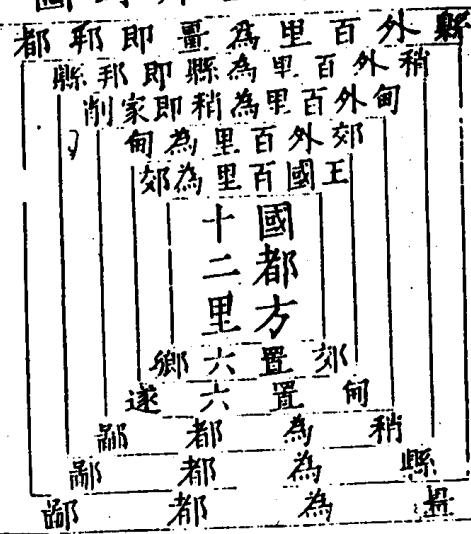 縣外百里爲畺即邦都
稍外百里爲縣即邦縣
甸外百里爲稍即家削
郊外百里爲甸
王國百里爲郊
國都方
十二里
郊置六鄉
甸置六遂
稍爲都鄙
縣爲都鄙
畺爲都鄙